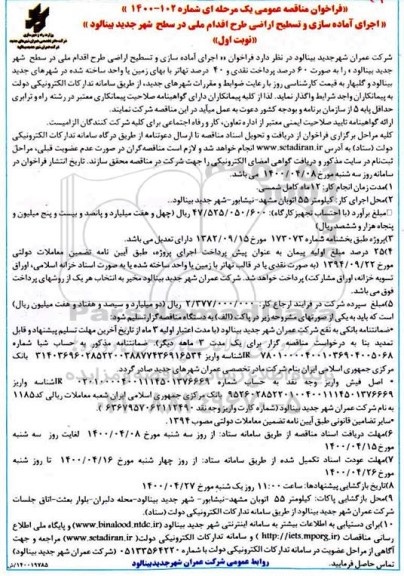 «فراخوان مناقصه عمومی یک مرحله ای شماره ۱۰۲-۱۴۰۰»
« اجرای آماده سازی و تسطیح اراضی طرح اقدام ملی در سطح شهر جدید بینالود »
«نوبت اول»
شرکت عمران شهرجدید بینالود در نظر دارد فراخوان «« اجرای آماده سازی و تسطیح اراضی طرح اقدام ملی در سطح شهر
جدید بینالود » را به صورت ۶۰ درصد پرداخت نقدی و ۴۰ درصد تهاتر با بهای زمین یا واحد ساخته شده در شهرهای جدید
بینالود و گلبهار به قیمت کارشناسی روز با رعایت ضوابط و مقررات شهرهای جدید، از طریق سامانه تدارکات الکترونیکی دولت
به پیمانکاران واجد شرایط واگذار نماید. لذا از کلیه پیمانکاران دارای گواهینامه صلاحیت پیمانکاری معتبر در رشته راه و ترابری
حداقل پایه ۵ از سازمان برنامه و بودجه کشور دعوت به عمل میآید در این مناقصه شرکت نمایند.
ارائه گواهینامه تایید صلاحیت ایمنی معتبر از اداره تعاون، کار و رفاه اجتماعی برای کلیه شرکت کنندگان الزامیست.
کلیه مراحل برگزاری فراخوان از دریافت و تحویل اسناد مناقصه تا ارسال دعوتنامه از طریق درگاه سامانه تدارکات الکترونیکی
دولت (ستاد) به آدرس www.setadiran.ir انجام خواهد شد و لازم است مناقصه‌گران در صورت عدم عضویت قبلی، مراحل
ثبت‌نام در سایت مذکور و دریافت گواهی امضای الکترونیکی را جهت شرکت در مناقصه محقق سازند. تاریخ انتشار فراخوان در
سامانه روز سه شنبه مورخ ۱۴۰۰/۰۴/۰۸ می باشد.
۱)مدت زمان انجام کار: ۱۲ماه کامل شمسی.
۲)محل اجرای کار: کیلومتر ۵۵ اتوبان مشهد-نیشابور-شهر جدید بینالود.
مبلغ برآورد (با احتساب تجهیز کارگاه): ۴۷/۵۲۵/۰۵۰/۶۰۰ ریال (چهل و هفت میلیارد و پانصد و بیست و پنج میلیون و
پنجاه هزار و ششصد ریال)
۳)پروژه طبق بخشنامه شماره ۱۷۳۰۷۳ مورخ ۱۳۸۲/۰۹/۱۵ دارای تعدیل می باشد.
۴)۲۵ درصد مبلغ اولیه پیمان به عنوان پیش پرداخت اجرای پروژه، طبق آیین نامه تضمین معاملات دولتی
مورخ ۱۳۹۴/۰۹/۲۲ (به صورت نقدی یا در قالب تهاتر با زمین یا واحد ساخته شده یا به صورت اسناد خزانه اسلامی، اوراق
تسویه خزانه، اوراق مشارکت) پرداخت خواهد شد. شرکت عمران شهر جدید بینالود مخیر به انتخاب هر یک از روشهای پرداخت
فوق می باشد.
۵)مبلغ سپرده شرکت در فرایند ارجاع کار: ۲/۳۷۷/۰۰۰/۰۰۰ ریال (دو میلیارد و سیصد و هفتاد و هفت میلیون ریال)
است که باید به یکی از صورتهای مشروحه زیر در پاکت (الف) به دستگاه مناقصه‌گزار تسلیم شود:
*ضمانتنامه بانکی به نفع شرکت عمران شهر جدید بینالود (با مدت اعتبار اولیه ۳ ماه از تاریخ آخرین مهلت تسلیم پیشنهاد و قابل
تمدید بنا به درخواست مناقصه گزار برای یک مدت ۳ ماهه دیگر).
مرکزی جمهوری اسلامی ایران بنام شرکت مادر تخصصی عمران شهرهای جدید صادر گردد.
* اصل فیش واریز وجه نقد به حساب شماره
بانک مرکزی جمهوری اسلامی ایران شعبه معاملات ریالی کد ۱۱۸۵
به نام شرکت عمران شهر جدید بینالود
*سایر تضامین قانونی طبق آیین نامه تضمین معاملات دولتی مصوب ۱۳۹۴.
۶)مهلت دریافت اسناد مناقصه از طریق سامانه ستاد: از روز سه شنبه مورخ ۱۴۰۰/۰۴/۰۸ لغایت روز سه شنبه
مورخ ۱۴۰۰/۰۴/۱۵
۷)مهلت عودت اسناد تکمیل شده از طریق سامانه ستاد: از روز چهار شنبه مورخ ۱۴۰۰/۰۴/۱۶ تا روز شنبه
مورخ ۱۴۰۰/۰۴/۲۶
۸)تاریخ بازگشایی پیشنهادها: ساعت ۱۱:۰۰ روز یک شنبه مورخ ۱۴۰۰/۰۴/۲۷
۹)محل بازگشایی پاکات: کیلومتر ۵۵ اتوبان مشهد-نیشابور- شهر جدید بینالود-محله دلبران-بلوار بعثت-اتاق جلسات
شرکت عمران شهر جدید بینالود و سامانه تدارکات الکترونیکی دولت(ستاد).
۱۰)برای دستیابی به اطلاعات بیشتر به سامانه اینترنتی شهر جدید بینالود (www.binalood.ntdc.ir) و پایگاه ملی اطلاع
رسانی مناقصات (http://iets.mporg.ir) و سامانه تدارکات الکترونیکی دولت (www.setadiran.ir) مراجعه و جهت
آگاهی از مراحل عضویت در سامانه تدارکات الکترونیکی دولت با شماره ۰۵۱۳۳۵۶۴۲۲۰ (شرکت عمران شهر جدید بینالود)
تماس حاصل فرمایید.
روابط عمومی شرکت عمران شهرجدیدبینالود
۱۴۰۰۱۹۷۸۵/ش